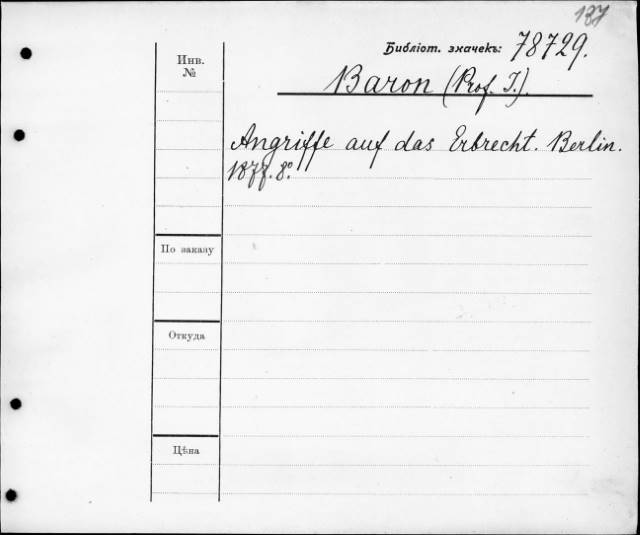 187
Библіот. значекъ: 78729.
Инв.
№
Baron (Prof. J.).
Angriffe auf das Erbrecht. Berlin.
1877. 8°.
По заказу
Откуда
Цѣна